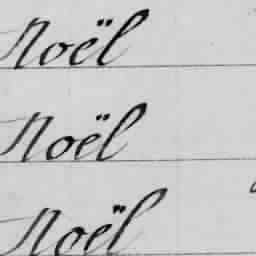 Noël
Noël
Noël